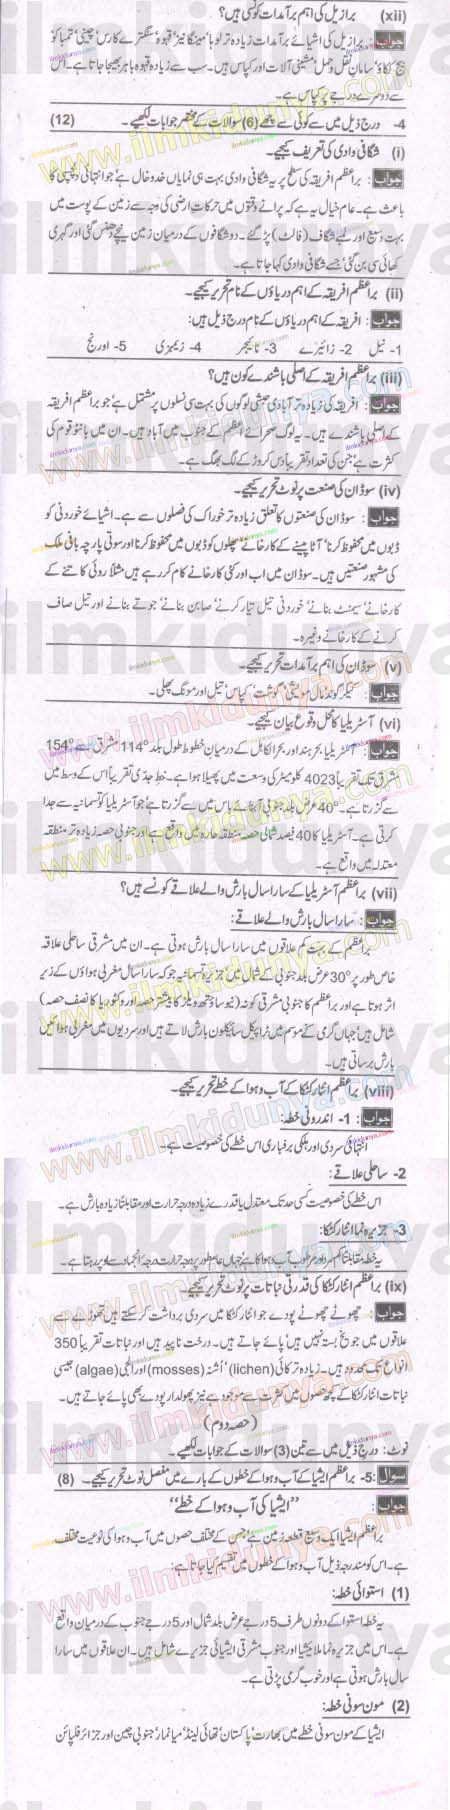 (xii) برازیل کی اہم برآمدات کونسی ہیں؟
جواب : برازیل کی اشیائے برآمدات زیادہ تر لوہا' مینگانیز' قہوہ' سنگترے کا رس' چینی' تمباکو'
کاکاؤ' سامان نقل و حمل' مشینی آلات اور کپاس ہیں۔ سب سے زیادہ قہوہ باہر بھیجا جاتا ہے۔ اس
سے دوسرے درجے پر کپاس ہے۔
4- درج ذیل میں سے کوئی سے چھے (6) سوالات کے مختصر جوابات لکھیے۔ (12)
(i) شگافی وادی کی تعریف کیجیے۔
جواب : براعظم افریقہ کی سطح پر یہ شگافی وادی بہت ہی نمایاں خدوخال ہے' جو انتہائی دلچسپی کا
باعث ہے۔ عام خیال یہ ہے کہ پرانے وقتوں میں حرکات ارضی کی وجہ سے زمین کے پوست میں
بہت وسیع اور لمبے شگاف (فالٹ) پڑ گئے۔ دو شگافوں کے درمیان زمین نیچے دھنس گئی اور گہری
کھائی سی بن گئی' جسے شگافی وادی کہا جاتا ہے۔
(ii) براعظم افریقہ کے اہم دریاؤں کے نام تحریر کیجیے۔
جواب : افریقہ کے اہم دریاؤں کے نام درج ذیل ہیں:
1- نیل 2- زائیرے 3- نائیجر 4- زیمبزی 5- اورنج
(iii) براعظم افریقہ کے اصلی باشندے کون ہیں؟
جواب : افریقہ کی زیادہ تر آبادی حبشی لوگوں کی بہت سی نسلوں پر مشتمل ہے' جو براعظم افریقہ
کے اصلی باشندے ہیں۔ یہ لوگ صحرائے اعظم کے جنوب میں آباد ہیں۔ ان میں بانٹو قوم کی
کثرت ہے' جن کی تعداد تقریباً دس کروڑ کے لگ بھگ ہے۔
(iv) سوڈان کی صنعت پر نوٹ تحریر کیجیے۔
جواب : سوڈان کی صنعتوں کا تعلق زیادہ تر خوراک کی فصلوں سے ہے۔ اشیائے خوردنی کو
ڈبوں میں محفوظ کرنا' آٹا پیسنے کے کارخانے' پھلوں کو ڈبوں میں محفوظ کرنا اور سوتی پارچہ بافی ملک
کی مشہور صنعتیں ہیں۔ سوڈان میں اب اور کئی کارخانے کام کر رہے ہیں مثلاً روئی کاتنے کے
کارخانے' سیمنٹ بنانے' خوردنی تیل تیار کرنے' صابن بنانے' جوتے بنانے اور تیل صاف
کرنے کے کارخانے وغیرہ۔
(v) سوڈان کی اہم برآمدات تحریر کیجیے۔
جواب : کیکر گوند' مال مویشی' گوشت' کپاس' تیل اور مونگ پھلی۔
(vi) آسٹریلیا کا محل وقوع بیان کیجیے۔
جواب : آسٹریلیا بحر ہند اور بحرالکاہل کے درمیان خطوط طول بلد 114° مشرق سے 154°
مشرق تک تقریباً 4023 کلومیٹر کی وسعت میں پھیلا ہوا ہے۔ خط جدی تقریباً اس کے وسط میں
سے گزرتا ہے۔ 40° عرض بلد جنوبی آبنائے باس میں سے گزرتا ہے' جو آسٹریلیا کو تسمانیہ سے جدا
کرتی ہے۔ آسٹریلیا کا 40 فیصد شمالی حصہ منطقہ حارہ میں واقع ہے اور جنوبی حصہ زیادہ تر منطقہ
معتدلہ میں واقع ہے۔
(vii) براعظم آسٹریلیا کے سارا سال بارش والے علاقے کونسے ہیں؟
جواب : سارا سال بارش والے علاقے:
براعظم کے بہت کم علاقوں میں سارا سال بارش ہوتی ہے۔ ان میں مشرقی ساحلی علاقہ
خاص طور پر 30° عرض بلد جنوبی کے شمال میں' جزیرہ تسمانیہ جو کہ سارا سال مغربی ہواؤں کے زیر
اثر ہوتا ہے اور براعظم کا جنوبی مشرقی کونہ (نیو ساؤتھ ویلز کا بیشتر حصہ اور وکٹوریا کا نصف حصہ)
شامل ہیں' جہاں گرمی کے موسم میں ٹراپیکل سائیکلون بارش لاتے ہیں اور سردیوں میں مغربی ہوائیں
بارش برساتی ہیں۔
(viii) براعظم انٹارکٹکا کے آب و ہوا کے خطے تحریر کیجیے۔
جواب : 1- اندرونی خطہ:
انتہائی سردی اور ہلکی برفباری اس خطے کی خصوصیت ہے۔
2- ساحلی علاقے:
اس خطے کی خصوصیت کسی حد تک معتدل یا قدرے زیادہ درجہ حرارت اور مقابلتاً زیادہ بارش ہے۔
3- جزیرہ نما انٹارکٹکا:
یہ خطہ مقابلتاً کم سرد اور مرطوب آب و ہوا کا ہے' جہاں عام طور پر درجہ حرارت درجہ انجماد سے اوپر رہتا ہے۔
(ix) براعظم انٹارکٹکا کی قدرتی نباتات پر نوٹ تحریر کیجیے۔
جواب : چھوٹے چھوٹے پودے جو انٹارکٹکا میں سردی برداشت کر سکتے ہیں' تھوڑے سے
علاقوں میں جو یخ بستہ نہیں ہیں' پائے جاتے ہیں۔ درخت ناپید ہیں اور نباتات تقریباً 350
انواع تک محدود ہیں۔ زیادہ تر کائی (lichen)' اُشنہ (mosses) اور الجی (algae) جیسی
نباتات انٹارکٹکا کے کچھ حصوں میں کثرت سے موجود ہے نیز پھولدار پودے بھی پائے جاتے ہیں۔
(حصہ دوم)
نوٹ: درج ذیل میں سے تین (3) سوالات کے جوابات لکھیے۔
سوال 5- براعظم ایشیا کے آب و ہوا کے خطوں کے بارے میں مفصل نوٹ تحریر کیجیے۔ (8)
جواب : "ایشیا کی آب و ہوا کے خطے"
براعظم ایشیا ایک وسیع قطعہ زمین ہے' جس کے مختلف حصوں میں آب و ہوا کی نوعیت مختلف
ہے۔ اس کو مندرجہ ذیل آب و ہوا کے خطوں میں تقسیم کیا جاتا ہے:
(1) استوائی خطہ:
یہ خطہ استوا کے دونوں طرف 5 درجے عرض بلد شمال اور 5 درجے جنوب کے درمیان واقع
ہے۔ اس میں جزیرہ نما ملائیشیا اور جنوب مشرقی ایشیائی جزیرے شامل ہیں۔ ان علاقوں میں سارا
سال بارش ہوتی ہے اور خوب گرمی پڑتی ہے۔
(2) مون سونی خطہ:
ایشیا کے مون سونی خطے میں بھارت' پاکستان' تھائی لینڈ' میانمار' جنوبی چین اور جزائر فلپائن